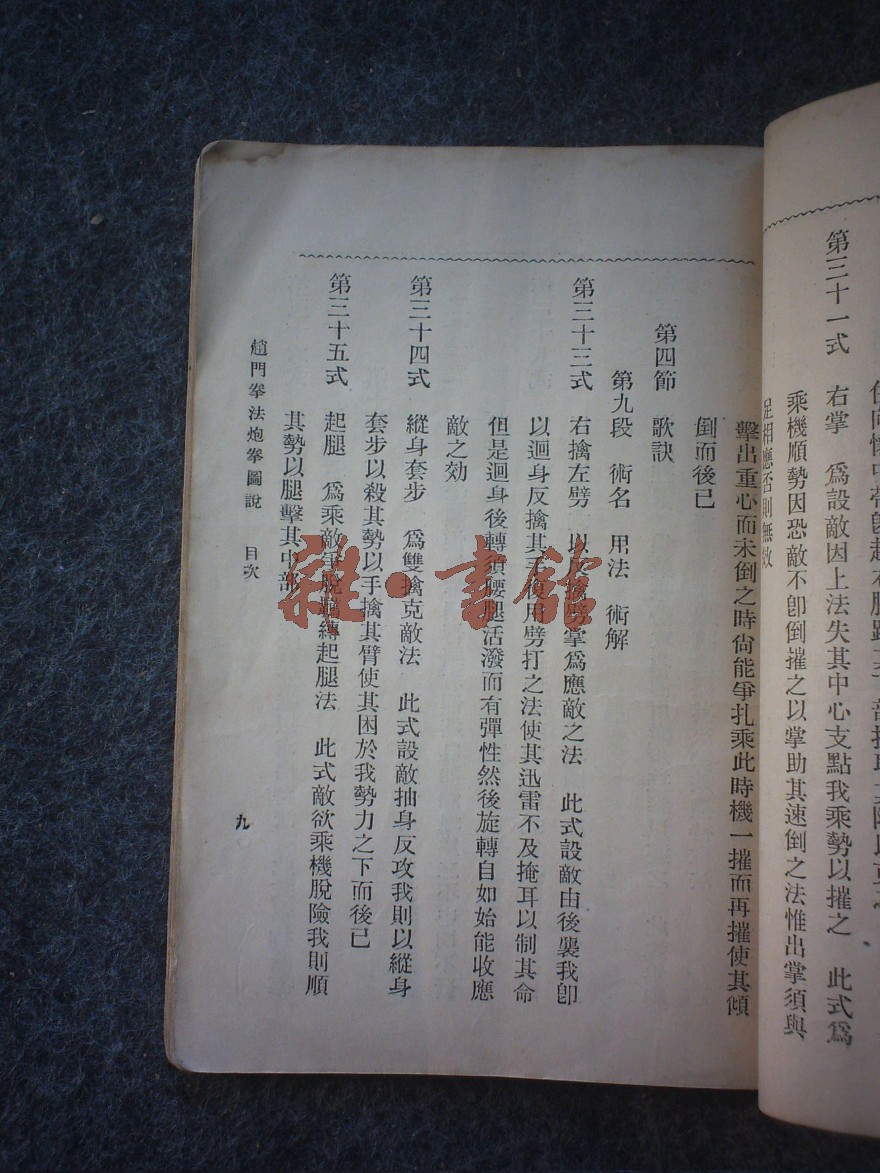 第三十一式　右掌　爲設敵因上法失其中心支點我乘勢以摧之　此式爲
乘機順勢因恐敵不卽倒摧之以掌助其速倒之法惟出掌須與
足相應否則無效
擊出重心而未倒之時尙能爭扎乘此時機一摧而再摧使其傾
倒而後已
第四節　歌訣
第九段　術名　用法　術解
第三十三式　右擒左劈　以反擒劈掌爲應敵之法　此式設敵由後襲我卽
以迴身反擒其手復用劈打之法使其迅雷不及掩耳以制其命
但是迴身後轉須腰腿活潑而有彈性然後旋轉自如始能收應
敵之効
第三十四式　縱身套步　爲雙擒克敵法　此式設敵抽身反攻我則以縱身
套步以殺其勢以手擒其臂使其困於我勢力之下而後已
第三十五式　起腿　爲乘敵爭脫臨轉起腿法　此式敵欲乘機脫險我則順
其勢以腿擊其中部
趙門拳法炮拳圖說　目次
九
雜·書館